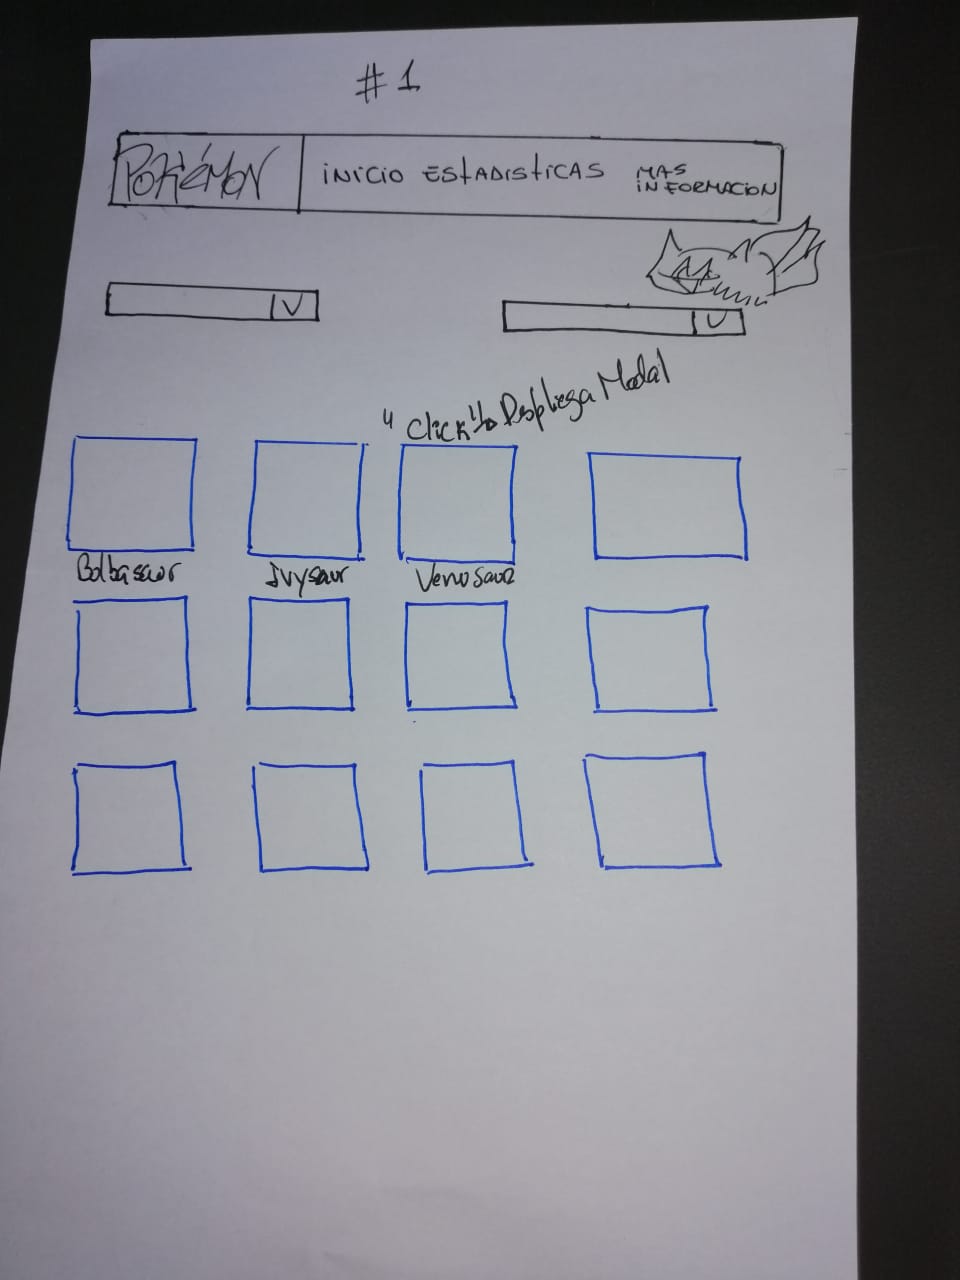 #1
POKÉMON
INICIO ESTADISTICAS MAS
INFORMACION
"Click" Despliega Modal
Bolbasaur Ivysaur Venusaur